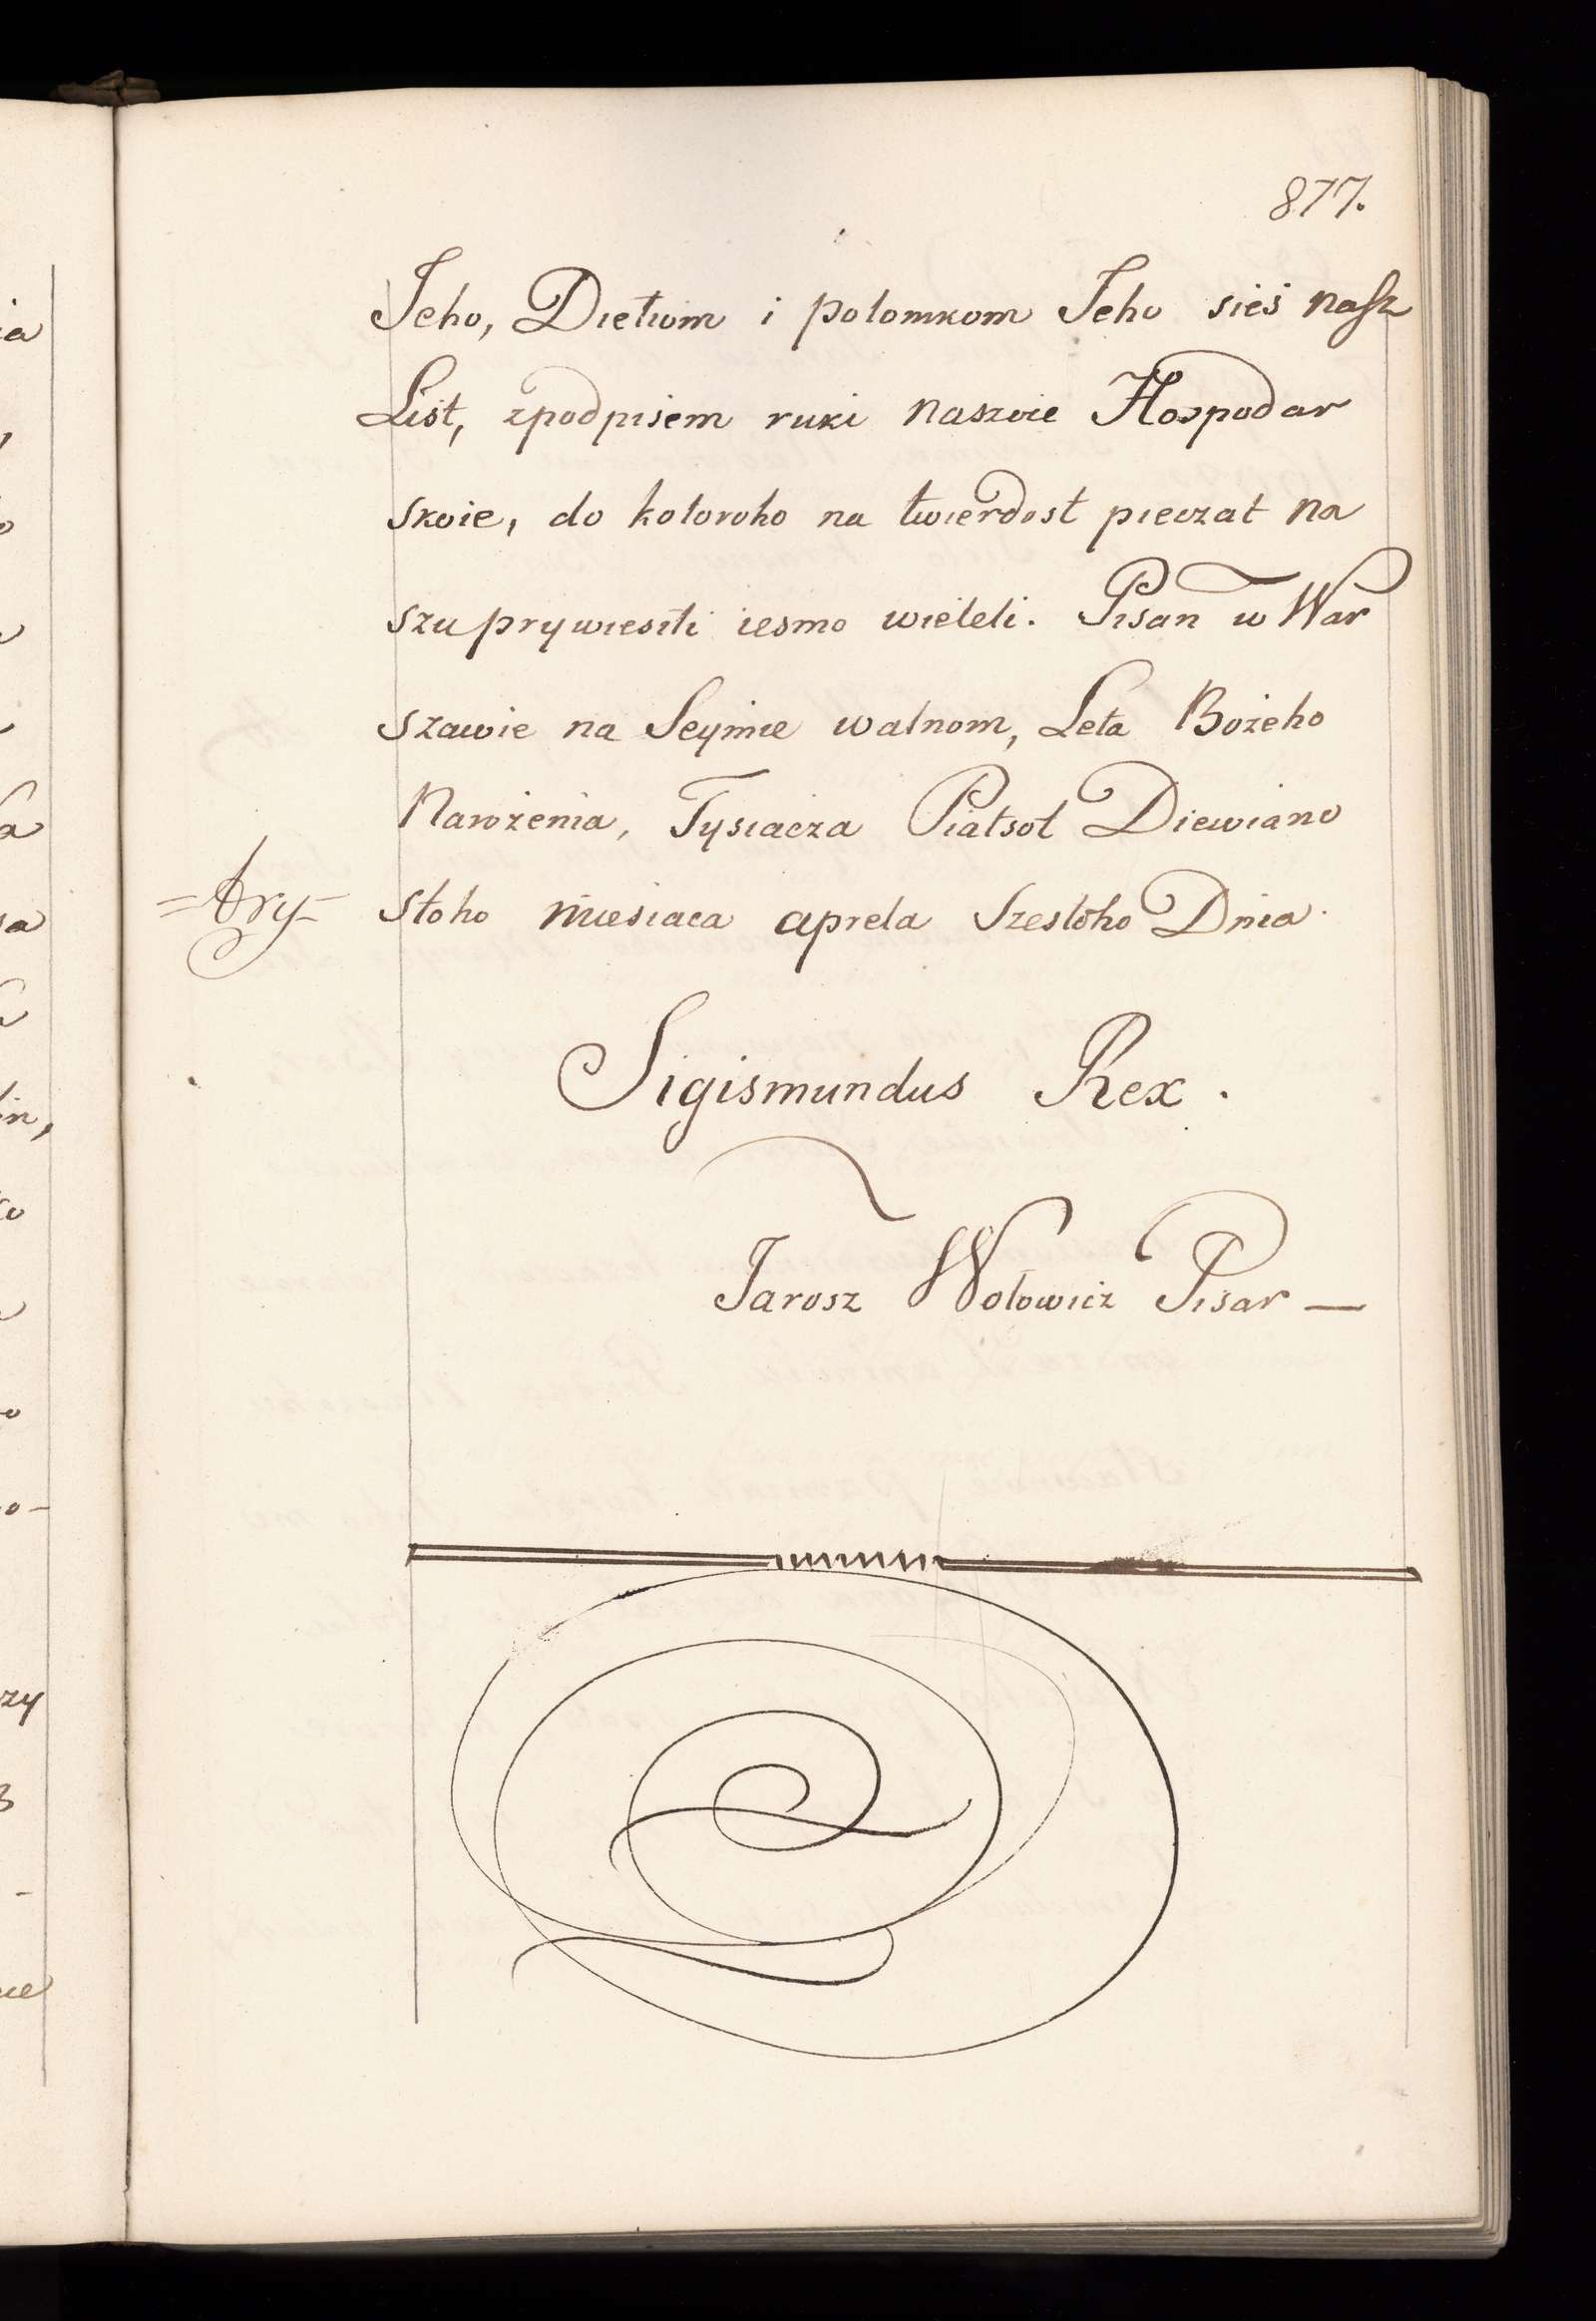 877.
Jeho, Dietiom i potomkom Jeho sieś nasz
List, zpodpisem ruki naszoie Hospodar
skoie, do kotoroho na twierdost pieczat na
szu prywiesiti iesmo wieleli. Pisan w War
szawie na Seymie walnom, Leta Bożeho
Narożenia, Tysiacza Piatsot Diewiano
=try= stoho miesiaca aprela Szestoho Dnia.
Sigismundus Rex.
Jarosz Wołowicz Pisar —